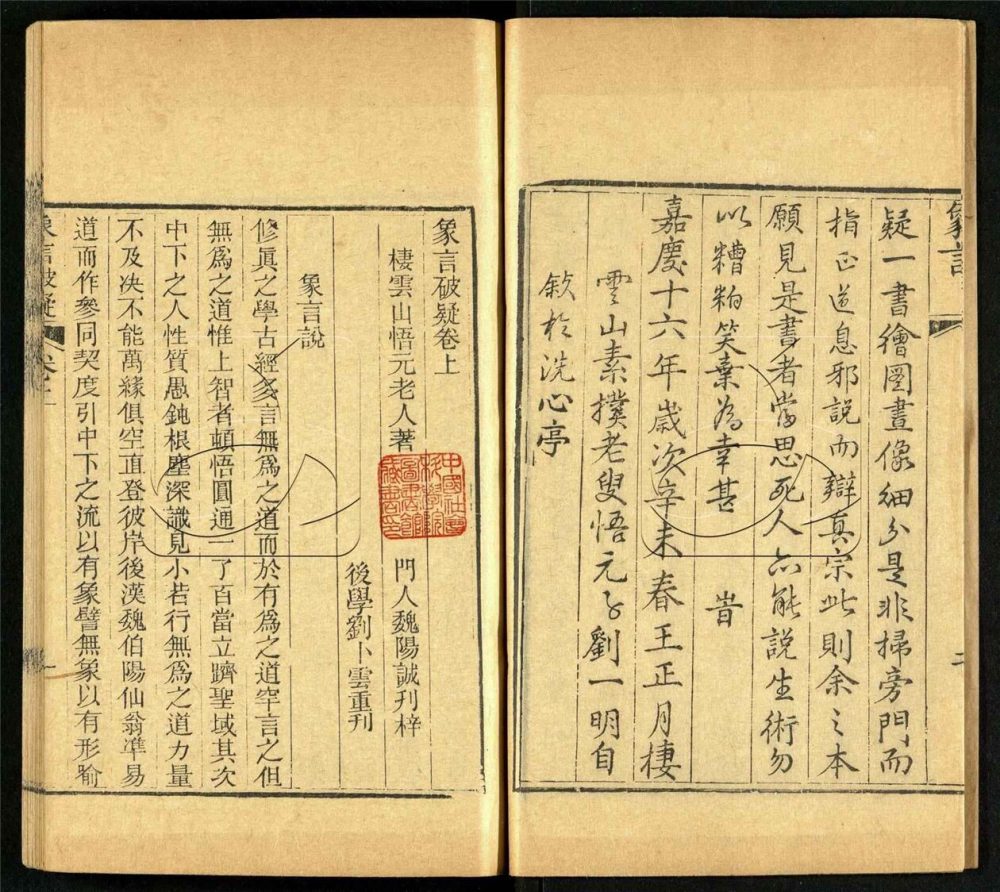 疑一書繪圖畫像細分是非掃旁門而
指正道息邪說而辯真宗此則余之本
願見是書者當思死人亦能說生術勿
以糟粕笑棄為幸甚 旹
嘉慶十六年歲次辛未春王正月棲
雲山素樸老叟悟元子劉一明自
敘於洗心亭
象言破疑卷上
棲雲山悟元老人著 門人魏陽誠刋梓
後學劉卜雲重刋
象言說
修眞之學古經多言無爲之道而於有爲之道罕言之但
無爲之道惟上智者頓悟圓通一了百當立躋聖域其次
中下之人性質愚鈍根塵深識見小若行無爲之道力量
不及决不能萬緣俱空直登彼岸後漢魏伯陽仙翁凖易
道而作參同契度引中下之流以有象譬無象以有形喻
象言破疑
中國社會
科學院
圖書館
藏書印